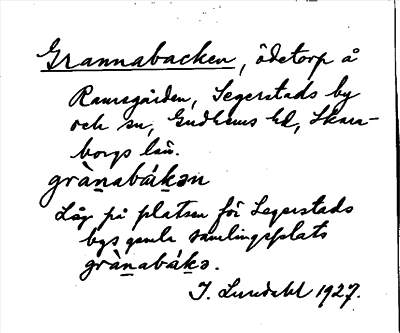 Grannabacken, ödetorp å
Ramsgården, Segerstads by
och sn, Gudhems hd, Skara-
borgs län.
grànabákən
Låg på platsen för Segerstads
bys gamla samlingsplats
grànabákə.
I. Lundahl 1927.